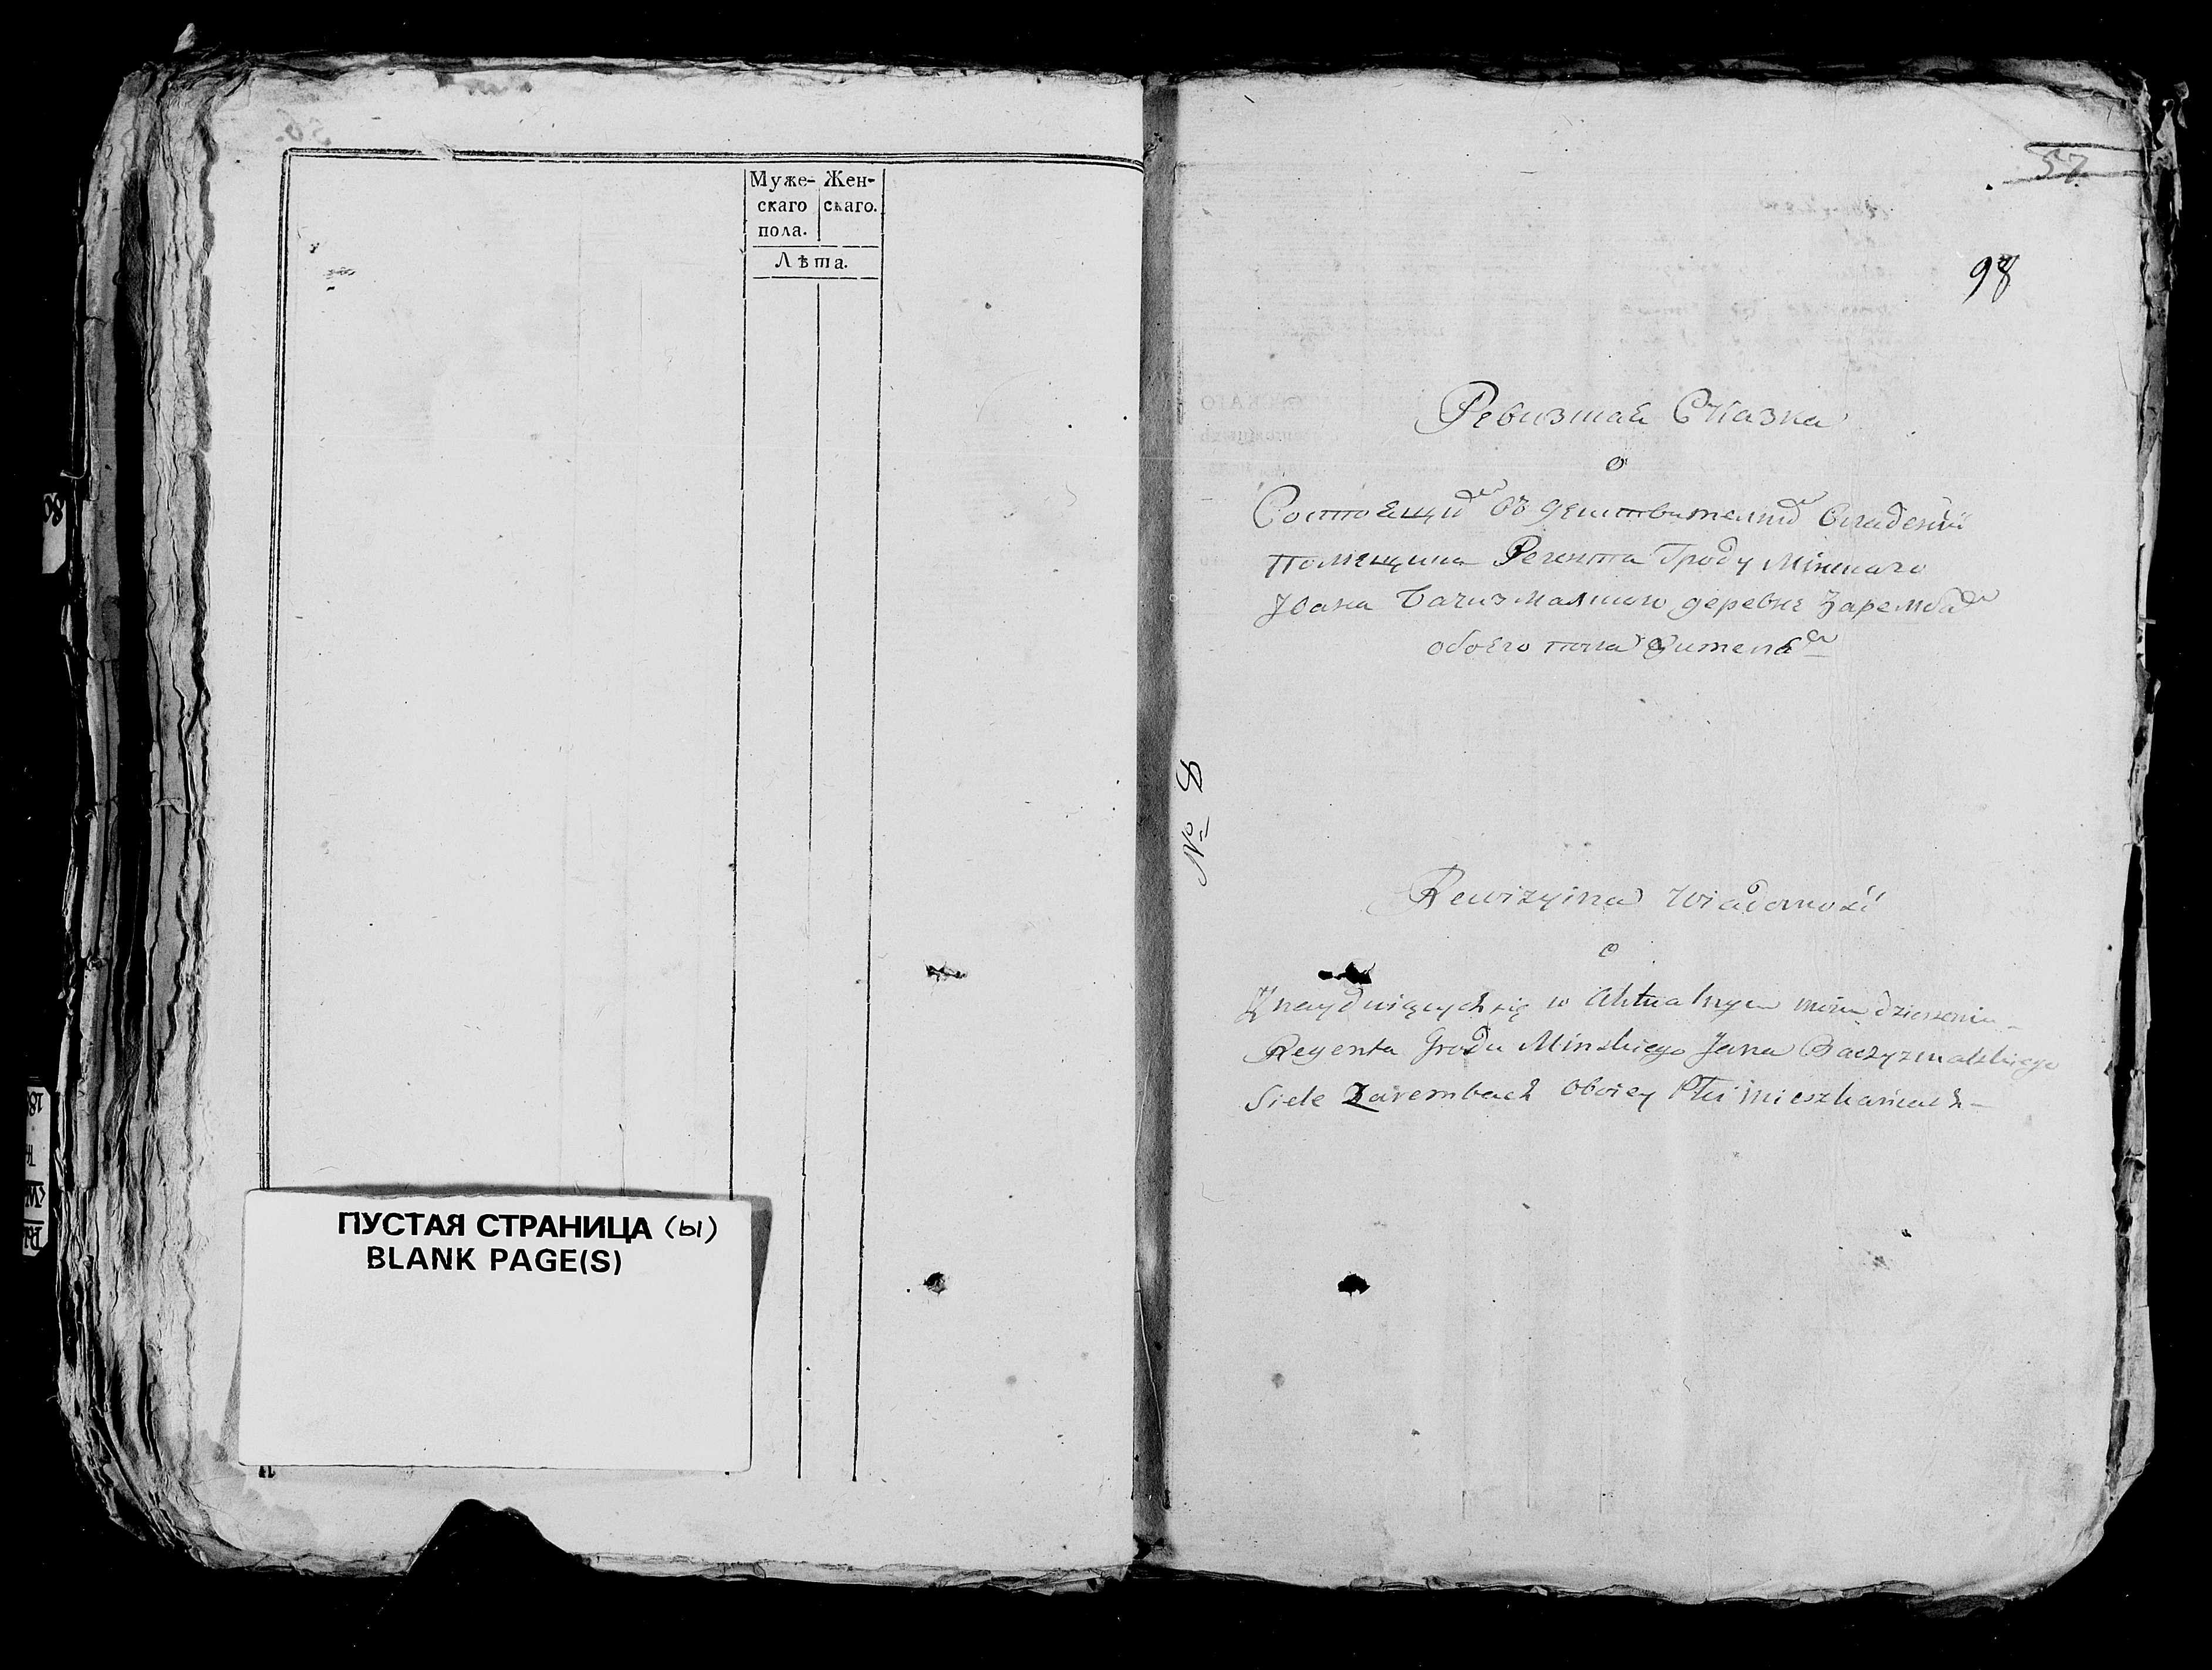 Муже- Жен-
скаго скаго.
пола.
Лѣта.
ПУСТАЯ СТРАНИЦА (ы)
BLANK PAGE(S)
57
98
Ревизшая Сказка
о
Состоещих въ дешствителних владений
Помещика Регента Гроду Мінскаго
Јвана Бачизмалского деревне Зарембах
обоего пола жителех
№ 8
Rewizyina Wiadomość
o
Znayduiących się w Aktualnym
Regenta Grodu Minskiego Jana Baczyzmalskiego
Siele Zarembach Oboiey Płci Mieszkańcach